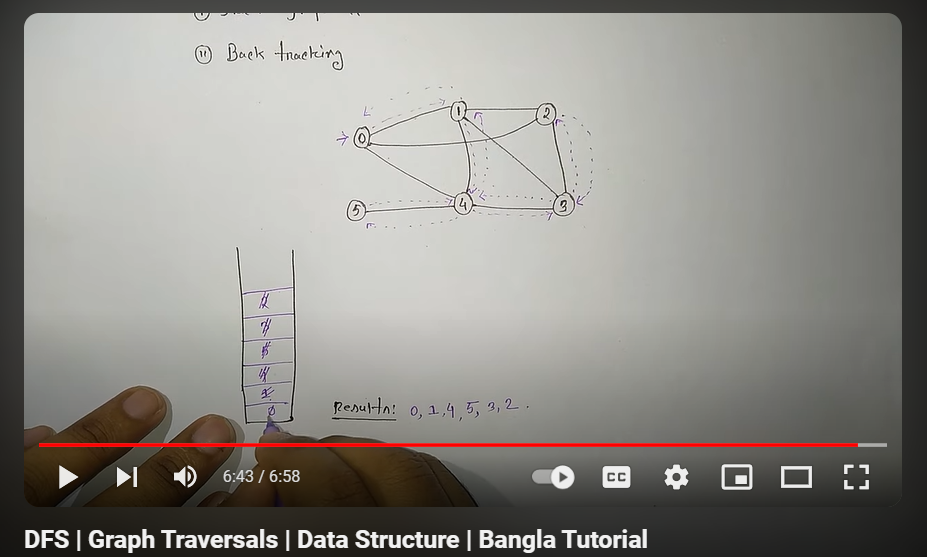 (II) Back tracking
1
2
0
5
4
3
Results: 0, 1, 4, 5, 3, 2.
6:43 / 6:58
CC
DFS | Graph Traversals | Data Structure | Bangla Tutorial